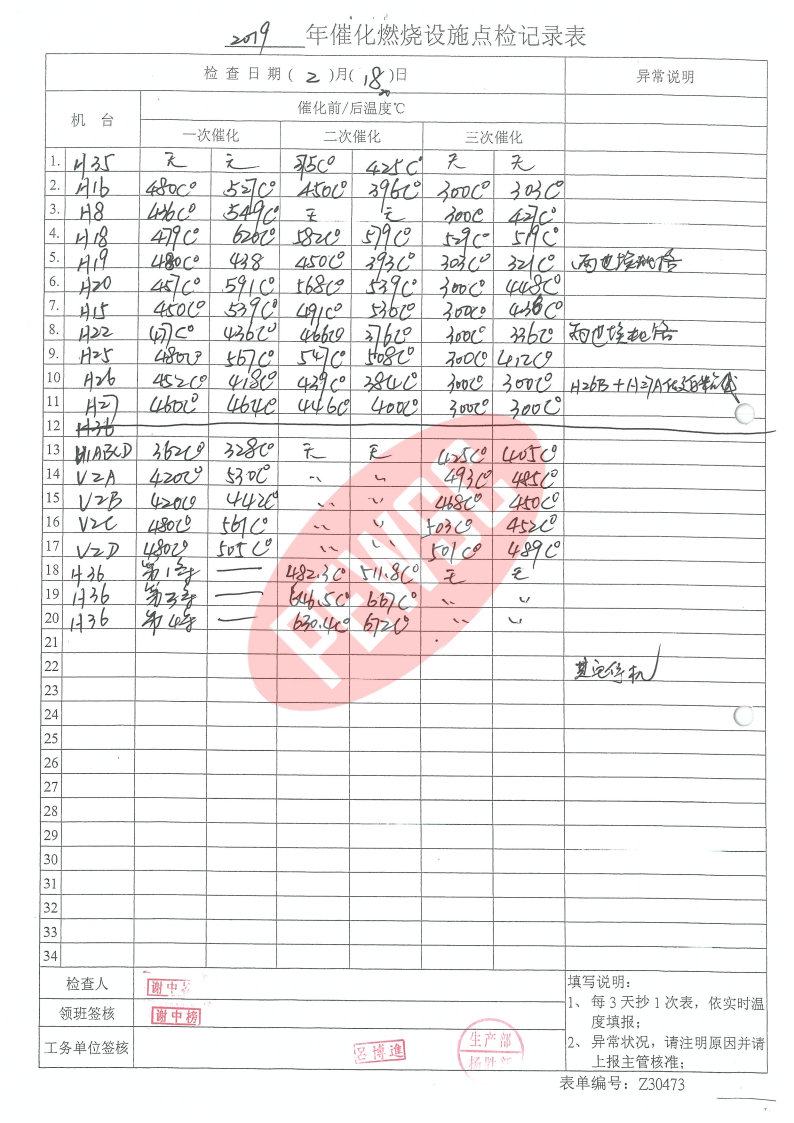 2019 年催化燃烧设施点检记录表
检查日期(2)月(18)日 异常说明
机台 催化前/后温度℃
一次催化 二次催化 三次催化
1. H35 无 无 375C° 425C° 无 无
2. H16 480C° 527C° 450C° 396C° 300C° 303C°
3. H8 436C° 549C° 无 无 300C° 427C°
4. H18 479C° 620C° 582C° 579C° 529C° 519C°
5. H19 480C° 438 450C° 393C° 303C° 321C°
6. H20 457C° 591C° 568C° 539C° 300C° 448C°
7. H15 450C° 539C° 491C° 530C° 300C° 436C°
8. H22 477C° 436C° 466C° 376C° 300C° 336C°
9. H25 480C° 567C° 547C° 508C° 300C° 412C°
10 H26 452C° 418C° 439C° 384C° 300C° 300C° H26B+H27A
11 H27 460C° 464C° 446C° 400C° 300C° 300C°
12 H36
13 V1ABCD 362C° 328C° 无 无 425C° 405C°
14 V2A 420C° 530C° 〃 〃 493C° 485C°
15 V2B 420C° 442C° 〃 〃 468C° 450C°
16 V2C 480C° 561C° 〃 〃 503C° 452C°
17 V2D 480C° 505C° 〃 〃 501C° 489C°
18 H36 第1台 — 482.3C° 511.8C° 无 无
19 H36 第3台 — 646.5C° 667C° 〃 〃
20 H36 第4台 — 630.4C° 672C° 〃 〃
21
22 其它停机
23
24
25
26
27
28
29
30
31
32
33
34
PEWSC
检查人 谢中榜
领班签核 谢中榜
工务单位签核 吕博進
生产部
杨胜新
填写说明：
1、每3天抄1次表，依实时温
度填报；
2、异常状况，请注明原因并请
上报主管核准；
表单编号：Z30473